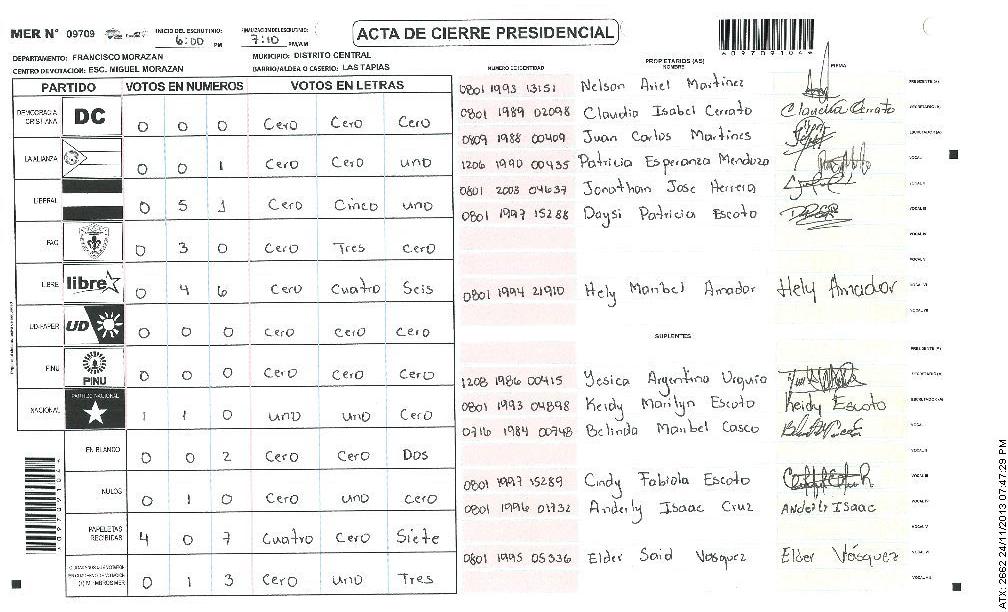 MER N° 09709 INICIO DEL ESCRUTINIO: 6:00 PM FINALIZACION DEL ESCRUTINIO: 7:10 PM/AM
ACTA DE CIERRE PRESIDENCIAL
0 9 7 0 9 1 0 4
DEPARTAMENTO: FRANCISCO MORAZAN MUNICIPIO: DISTRITO CENTRAL
CENTRO DE VOTACION: ESC. MIGUEL MORAZAN BARRIO/ALDEA O CASERIO: LAS TAPIAS
PARTIDO VOTOS EN NUMEROS VOTOS EN LETRAS
DEMOCRACIA CRISTIANA DC 0 0 0 Cero Cero Cero
LA ALIANZA 0 0 1 Cero Cero uno
LIBERAL 0 5 1 Cero Cinco uno
PAC 0 3 0 Cero Tres Cero
LIBRE libre 0 4 6 Cero Cuatro Seis
UD-FAPER UD 0 0 0 Cero Cero Cero
PINU PINU 0 0 0 Cero Cero Cero
NACIONAL PARTIDO NACIONAL 1 1 0 uno uno Cero
EN BLANCO 0 0 2 Cero Cero Dos
NULOS 0 1 0 Cero uno cero
PAPELETAS RECIBIDAS 4 0 7 Cuatro Cero Siete
0 1 3 Cero uno Tres
NUMERO IDENTIDAD PROPIETARIOS (AS) NOMBRE FIRMA
0801 1993 13151 Nelson Ariel Martinez
0801 1989 02098 Claudia Isabel Cerrato Claudia Cerrato
0809 1988 00409 Juan Carlos Martines
1206 1990 00435 Patricia Esperanza Mendoza VOCAL I
0801 2003 04637 Jonathan Jose Herrera VOCAL II
0801 1997 15288 Daysi Patricia Escoto VOCAL III
VOCAL IV
VOCAL V
0801 1994 21910 Hely Maribel Amador Hely Amador VOCAL VI
VOCAL VII
SUPLENTES
1208 1986 00415 Yesica Argentina Urquia
0801 1993 04898 Keidy Marilyn Escoto Keidy Escoto
0716 1984 00748 Belinda Maribel Casco VOCAL I
VOCAL II
0801 1997 15289 Cindy Fabiola Escoto VOCAL III
Anderly Isaac Cruz Anderly Isaac VOCAL IV
VOCAL V
0801 1995 05336 Elder Said Vasquez Elder Vásquez VOCAL VI
VOCAL VII
ATX: 2662 24/11/2013 07:47:29 PM